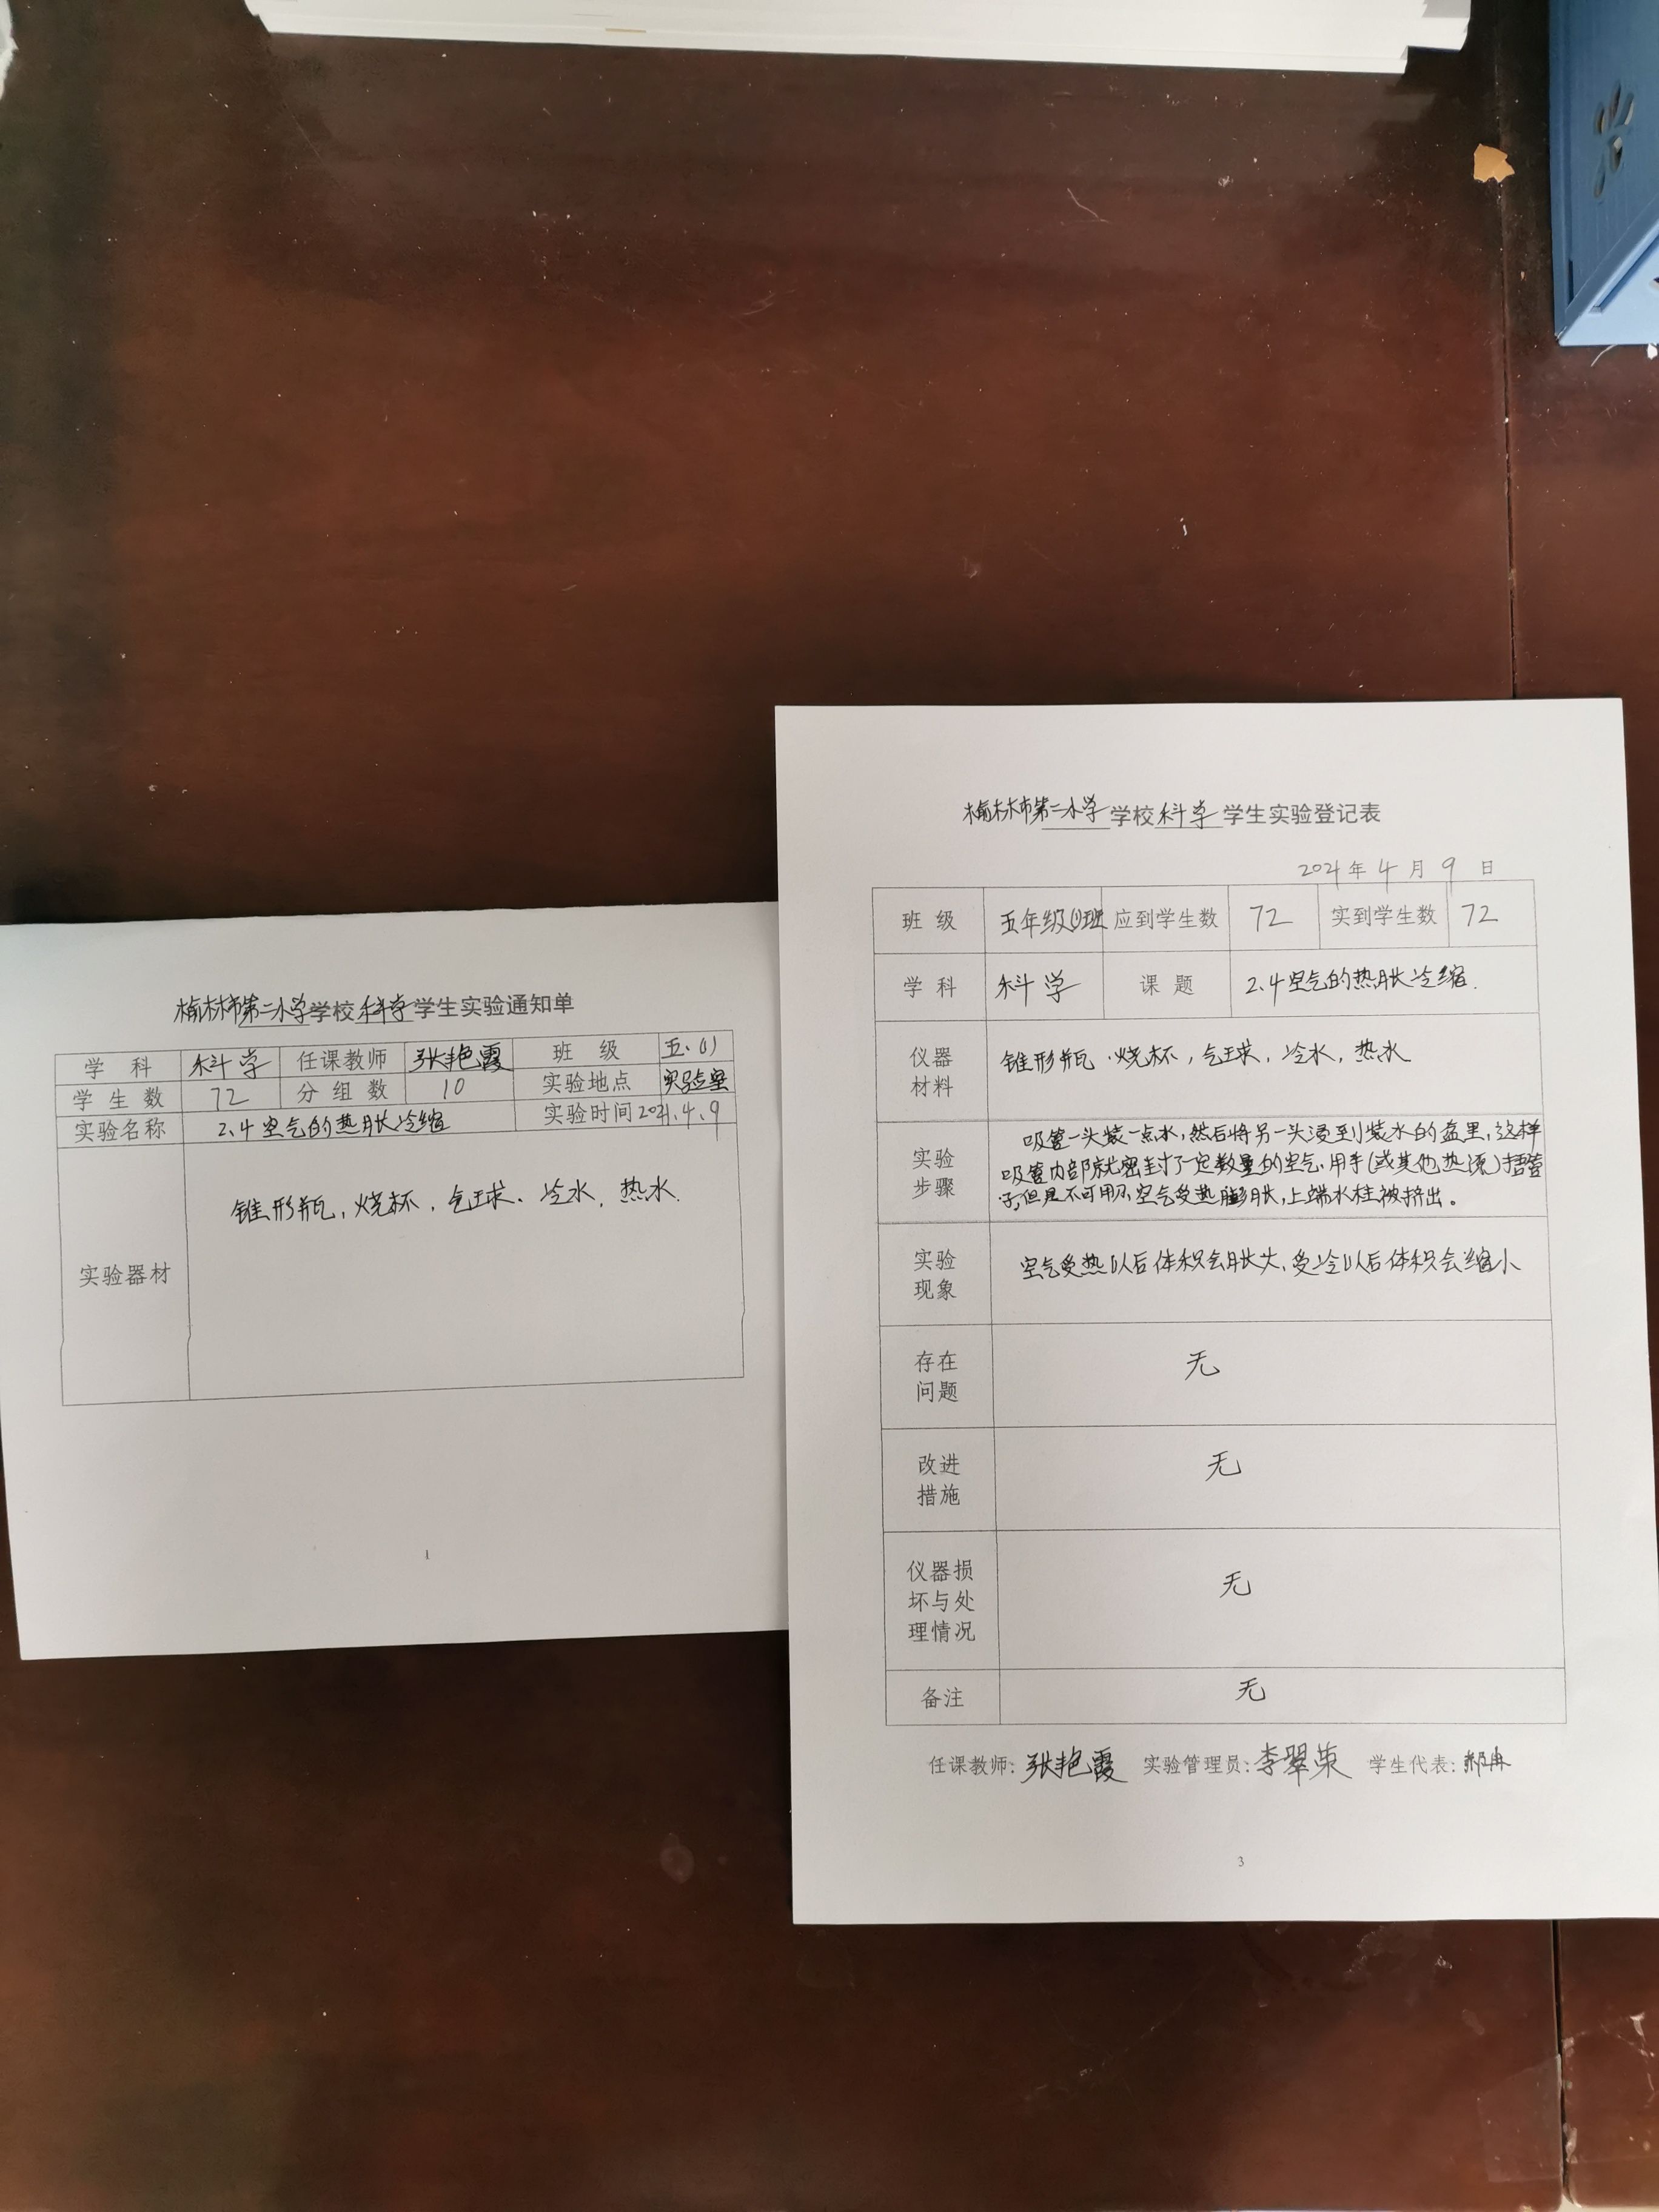 榆林市第二小学学校科学学生实验通知单
学 科 科学 任课教师 张艳霞 班 级 五.(1)
学 生 数 72 分 组 数 10 实验地点 实验室
实验名称 2.4空气的热胀冷缩 实验时间 2021.4.9
实验器材 锥形瓶，烧杯，气球、冷水，热水.
1
榆林市第二小学学校科学学生实验登记表
2021年4月9日
班 级 五年级(1)班 应到学生数 72 实到学生数 72
学 科 科学 课 题 2.4空气的热胀冷缩.
仪器
材料
锥形瓶，烧杯，气球，冷水，热水
实验
步骤
吸管一头装一点水，然后将另一头浸到装水的盆里，这样
吸管内部就密封了一定数量的空气.用手(或其他热源)捂管
子，但是不可用力，空气受热膨胀，上端水柱被挤出。
实验
现象
空气受热以后体积会胀大，受冷以后体积会缩小
存在
问题
无
改进
措施
无
仪器损
坏与处
理情况
无
备注 无
任课教师：张艳霞 实验管理员：李翠荣 学生代表：
3